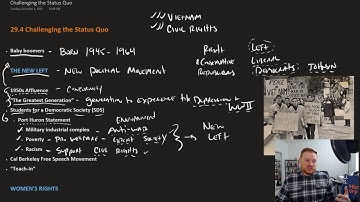 Challenging the Status Quo
→ VIETNAM
→ CIVIL RIGHTS
29.4 Challenging the Status Quo
Baby boomers - BORN 1945 - 1964
RIGHT
CONSERVATIVE
REPUBLICANS
LEFT
LIBERAL
DEMOCRATS
THE NEW LEFT - NEW POLITICAL MOVEMENT
1950s Affluence - CONFORMITY
"The Greatest Generation" - GENERATION TO EXPERIENCE THE DEPRESSION & WWII
Students for a Democratic Society (SDS)
Port Huron Statement
ENVIRONMENT
✓ Military industrial complex - ANTI-WAR
✓ Poverty - PRO WELFARE - GREAT SOCIETY
✓ Racism - SUPPORT CIVIL RIGHTS
→ NEW LEFT
Cal Berkeley Free Speech Movement
"Teach-In"
WOMEN'S RIGHTS